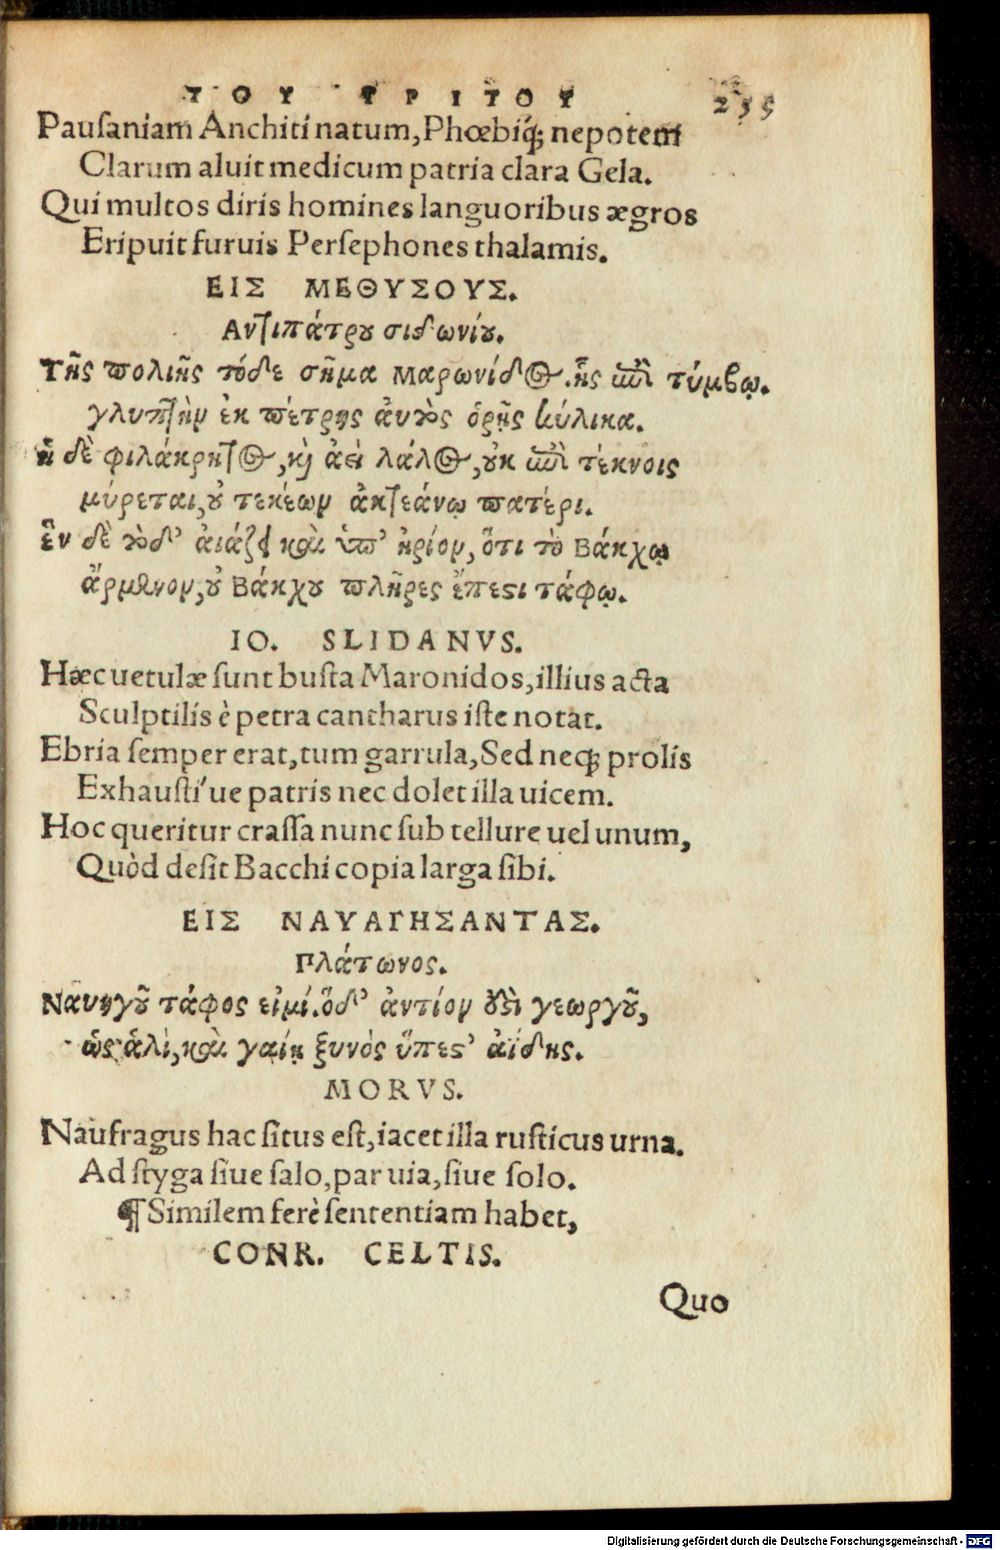 ΤΟΥ ΤΡΙΤΟΥ 255
Pauſaniam Anchiti natum, Phœbiq́; nepotem
Clarum aluit medicum patria clara Gela.
Qui multos diris homines languoribus ægros
Eripuit furuis Perſephones thalamis.
ΕΙΣ ΜΕΘΥΣΟΥΣ.
Αντιπάτρου σιδωνίου.
Τῆς πολιῆς τόδε σῆμα Μαρωνίδος, ἧς ἐπὶ τύμβῳ.
γλυπτὴν ἐκ πέτρης αὐτὸς ὁρῇς κύλικα.
ἡ δὲ φιλάκρητος, καὶ ἀεὶ λάλος, οὐκ ἐπὶ τέκνοις
μύρεται, οὐ τεκέων ἀκτεάνῳ πατέρι.
ἓν δὲ τόδ’ αἰάζει καὶ ὑπ’ ἠρίον, ὅτι τὸ Βάκχῳ
ἄρμενον, οὐ Βάκχου πλῆρες ἔπεστι τάφῳ.
IO. SLIDANVS.
Hæc uetulæ ſunt buſta Maronidos, illius acta
Sculptilis è petra cantharus iſte notat.
Ebria ſemper erat, tum garrula, Sed neq; prolis
Exhauſti´ue patris nec dolet illa uicem.
Hoc queritur craſſa nunc ſub tellure uel unum,
Quòd deſit Bacchi copia larga ſibi.
ΕΙΣ ΝΑΥΑΓΗΣΑΝΤΑΣ.
Πλάτωνος.
Ναυηγοῦ τάφος εἰμί. ὅδ’ ἀντίον ἐστὶ γεωργοῦ,
ὡς ἁλὶ, καὶ γαίῃ ξυνὸς ὕπεστ’ ἀΐδης.
MORVS.
Naufragus hac ſitus eſt, iacet illa ruſticus urna.
Ad ſtyga ſiue ſalo, par uia, ſiue ſolo.
¶ Similem ferè ſententiam habet,
CONR. CELTIS.
Quo
Digitalisierung gefördert durch die Deutsche Forschungsgemeinschaft - DFG